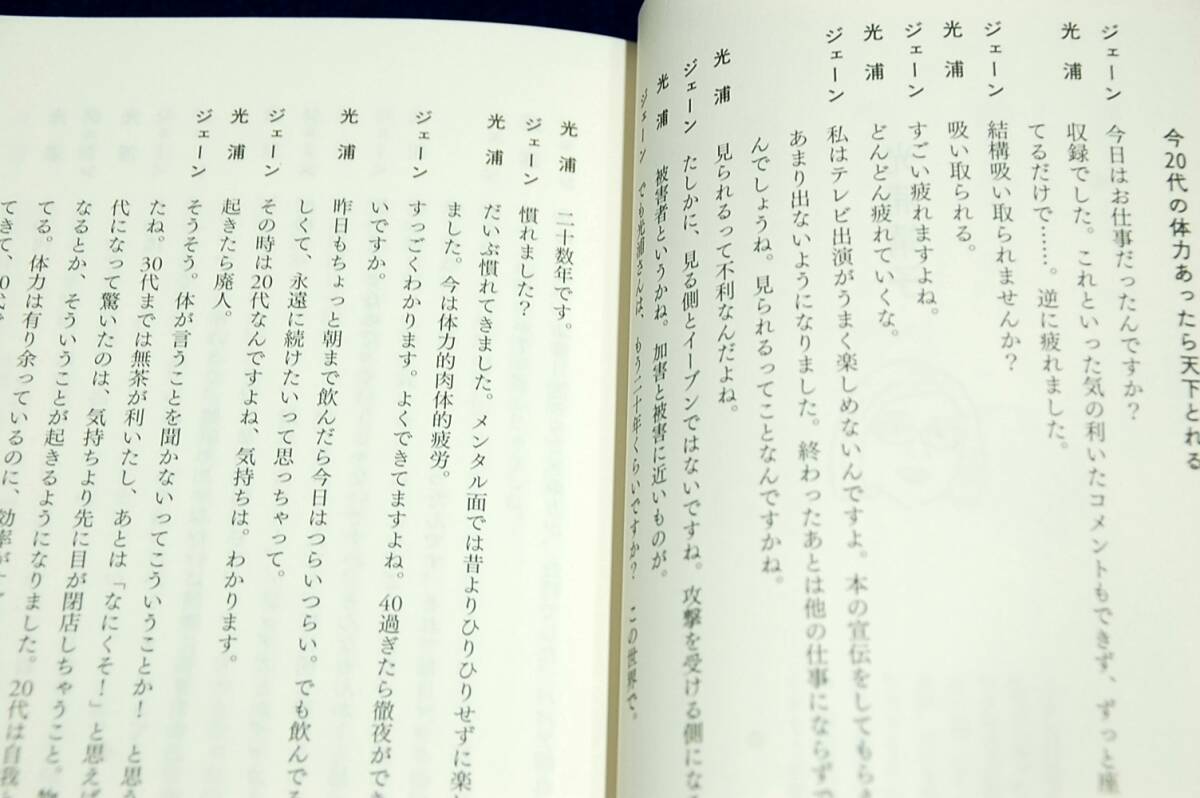 今20代の体力あったら天下とれる
ジェーン 今日はお仕事だったんですか？
光浦 収録でした。これといった気の利いたコメントもできず、ずっと座
てるだけで……。逆に疲れました。
ジェーン 結構吸い取られませんか？
光浦 吸い取られる。
ジェーン すごい疲れますよね。
光浦 どんどん疲れていくな。
ジェーン 私はテレビ出演がうまく楽しめないんですよ。本の宣伝をしてもらえ
あまり出ないようになりました。終わったあとは他の仕事にならずで
んでしょうね。見られるってことなんですかね。
光浦 見られるって不利なんだよね。
ジェーン たしかに、見る側とイーブンではないですね。攻撃を受ける側にな
光浦 被害者というかね。加害と被害に近いものが。
ジェーン でも光浦さんは、もう二十年くらいですか？ この世界で。
光浦 二十数年です。
ジェーン 慣れました？
光浦 だいぶ慣れてきました。メンタル面では昔よりひりひりせずに楽
ました。今は体力的肉体的疲労。
ジェーン すっごくわかります。よくできてますよね。40過ぎたら徹夜ができ
いですか。
光浦 昨日もちょっと朝まで飲んだら今日はつらいつらい。でも飲んでる
しくて、永遠に続けたいって思っちゃって。
ジェーン その時は20代なんですよね、気持ちは。わかります。
光浦 起きたら廃人。
ジェーン そうそう。体が言うことを聞かないってこういうことか！ と思う
たね。30代までは無茶が利いたし、あとは「なにくそ！」と思えば
代になって驚いたのは、気持ちより先に目が閉店しちゃうこと。物
なるとか、そういうことが起きるようになりました。20代は自我と
てる。体力は有り余っているのに、効率が
てきて、